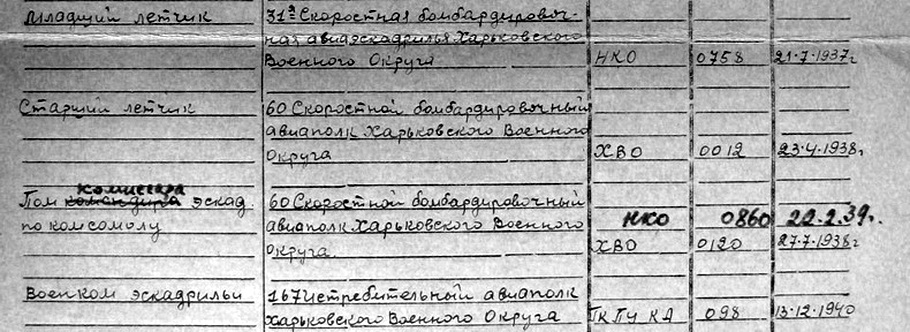 Младший летчик 31ая Скоростная бомбардировоч-
ная авиаэскадрилья Харьковского
Военного Округа НКО 0758 21·7·1937г
Старший летчик 60 Скоростной бомбардировочный
авиаполк Харьковского Военного
Округа ХВО 0012 23·4·1938г
комиссара
Пом командира эскад. 60 Скоростной бомбардировочный
по комсомолу авиаполк Харьковского Военного НКО 0860 22.2.39г.
Округа. ХВО 0120 27·7·1938г
Военком эскадрильи 167 Истребительный авиаполк
Харьковского Военного Округа ПКПУ КА 098 13·12·1940